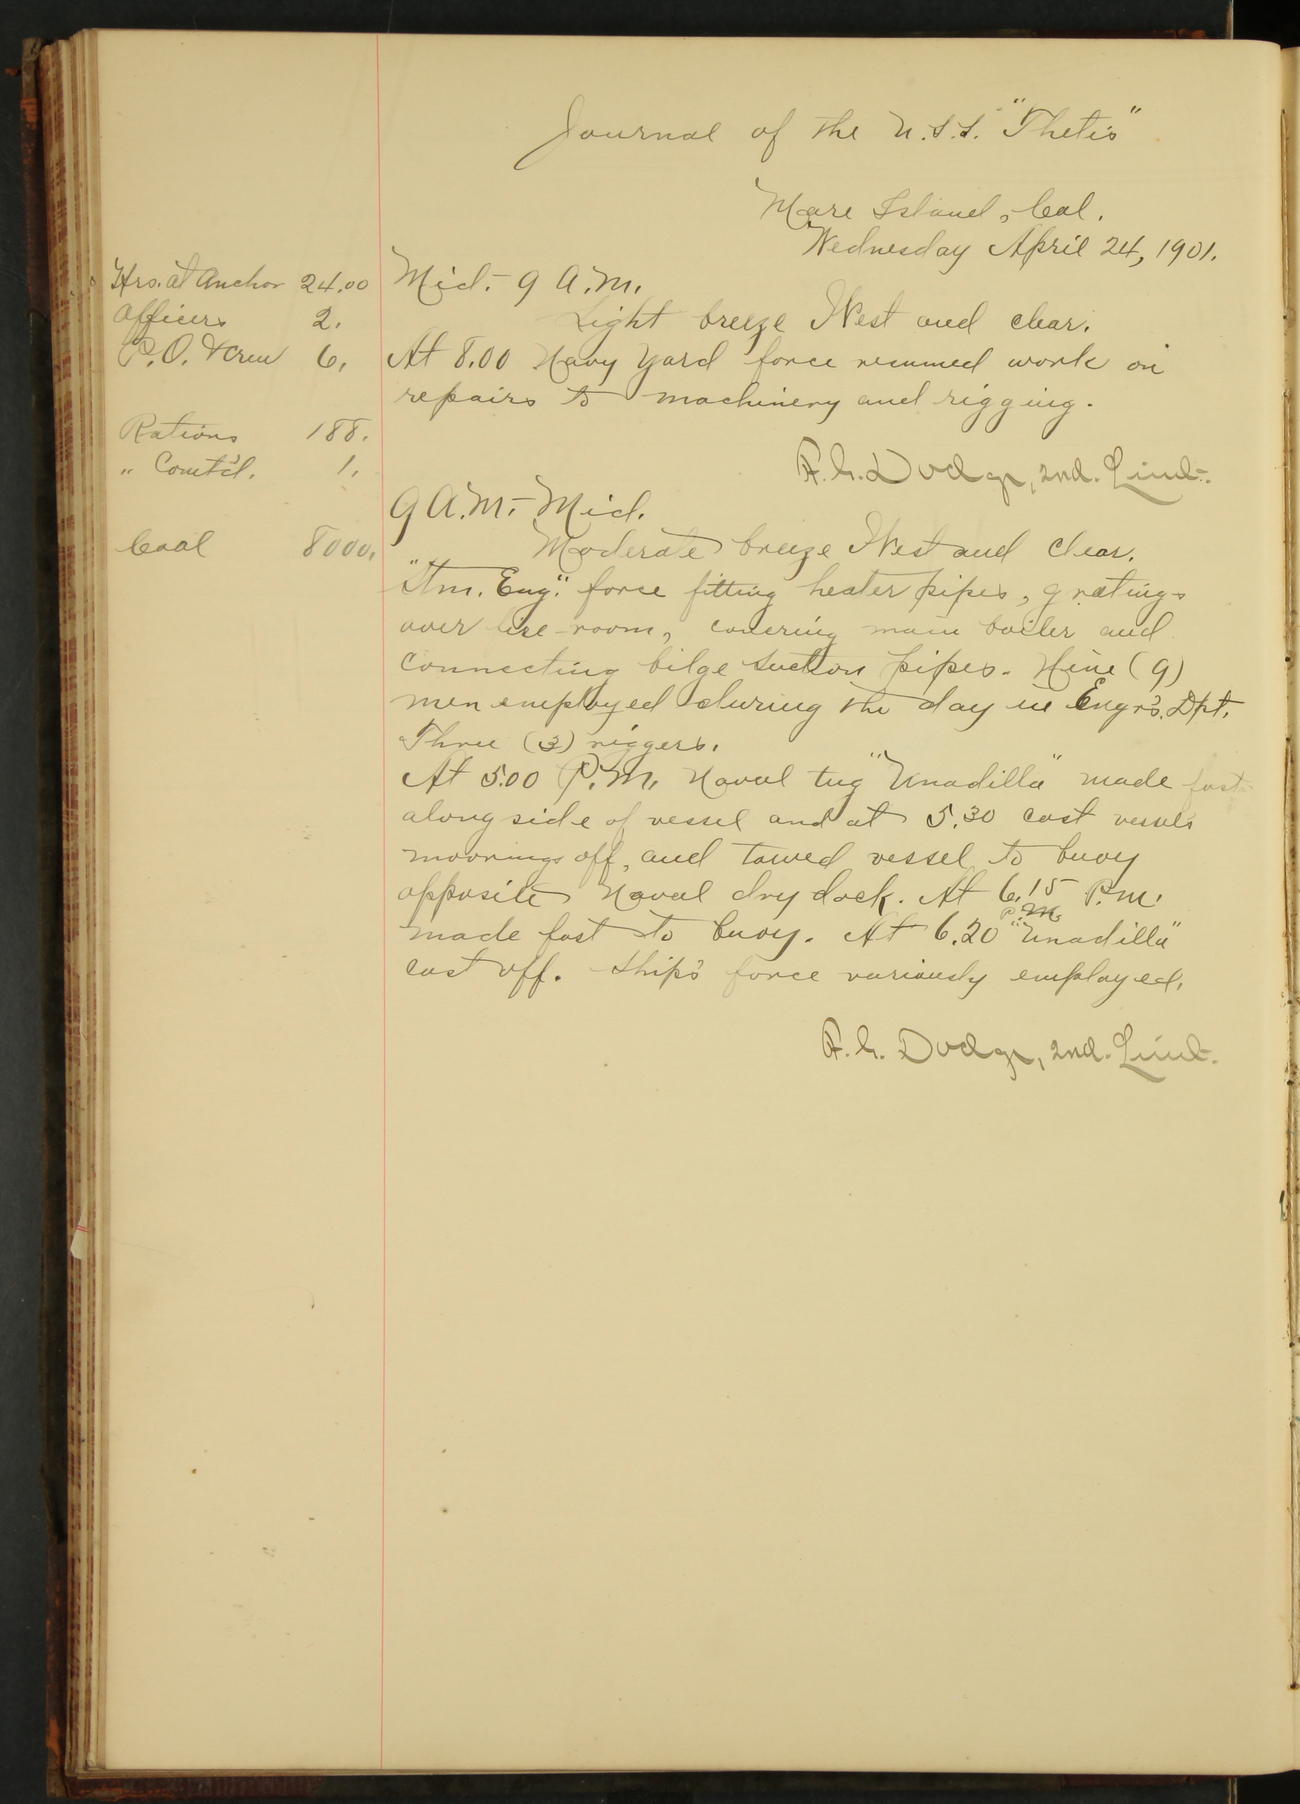 Journal of the U.S.S. "Thetis"
Mare Island, Cal.
Wednesday April 24, 1901.
Hrs. at Anchor 24.00
Officers 2.
P.O. & Crew 6.
Rations 188.
" Comt'd. 1.
Coal 8000.
Mid. - 9 A.M.
Light breeze West and clear.
At 8.00 Navy Yard force resumed work on
repairs to machinery and rigging.
F. G. Dodge, 2nd. Lieut.
9 A.M. - Mid.
Moderate breeze West and clear.
"Stm. Eng." force fitting heater pipes, gratings
over fire-room, covering main boiler and
connecting bilge suction pipes. Nine (9)
men employed during the day in Engr's. Dpt.
Three (3) riggers.
At 5.00 P.M. Naval tug "Unadilla" made fast
alongside of vessel and at 5.30 cast vessels
moorings off, and towed vessel to buoy
opposite Naval dry dock. At 6.15 P.M.
made fast to buoy. At 6.20 P.M. "Unadilla"
cast off. Ship's force variously employed.
F. G. Dodge, 2nd. Lieut.